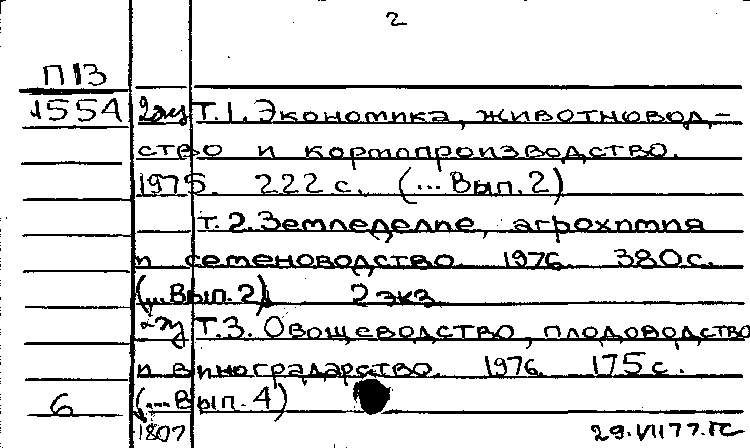 2
П13
1554 2экз Т.1. Экономика, животновод-
ство и кормопроизводство.
1975. 222 с. (... Вып.2)
Т.2. Земледелие, агрохимия
и семеноводство. 1976. 380 с.
(... Вып.2) 2 экз
Т.3. Овощеводство, плодоводство
и виноградарство. 1976. 175 с.
6 (... Вып.4)
1807 29.VII77.